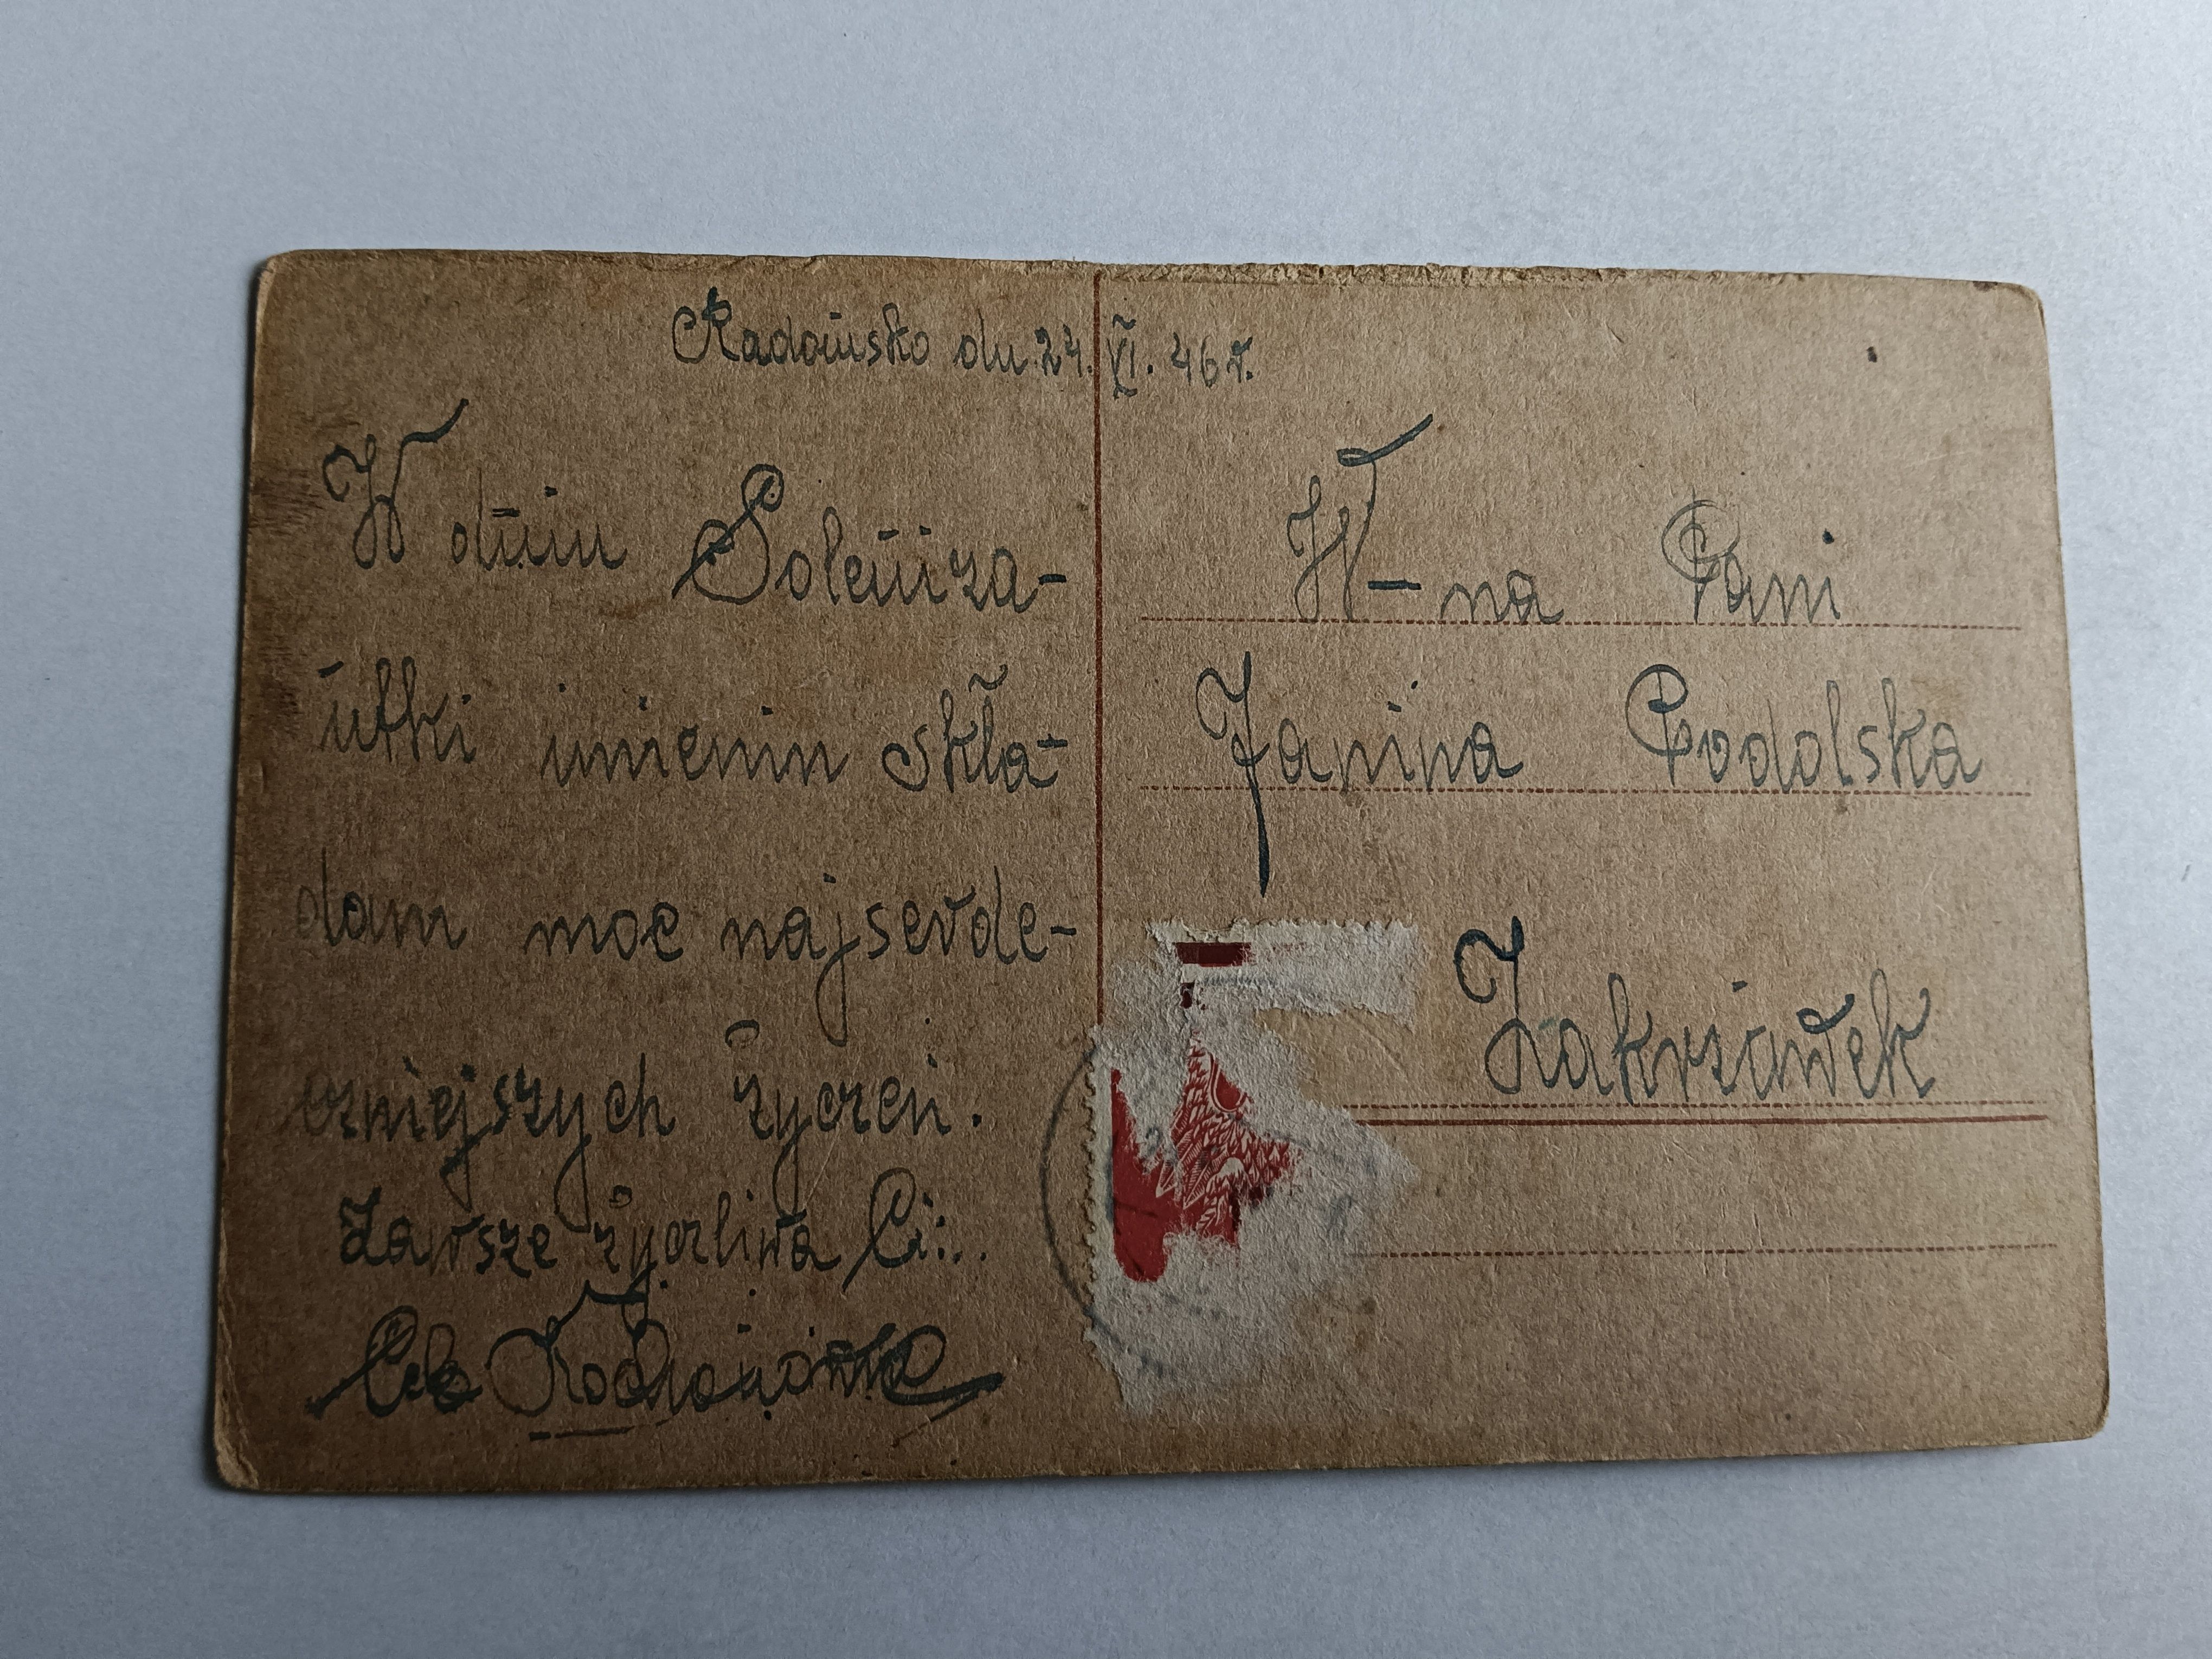 Radomsko dn. 24. XI. 46 r.
W dniu Soleniza-
ntki imienin skła-
dam moc najserde-
czniejszych życzeń.
Zawsze życzliwa Ci:..
W-na Pani
Janina Podolska
Zakrzówek